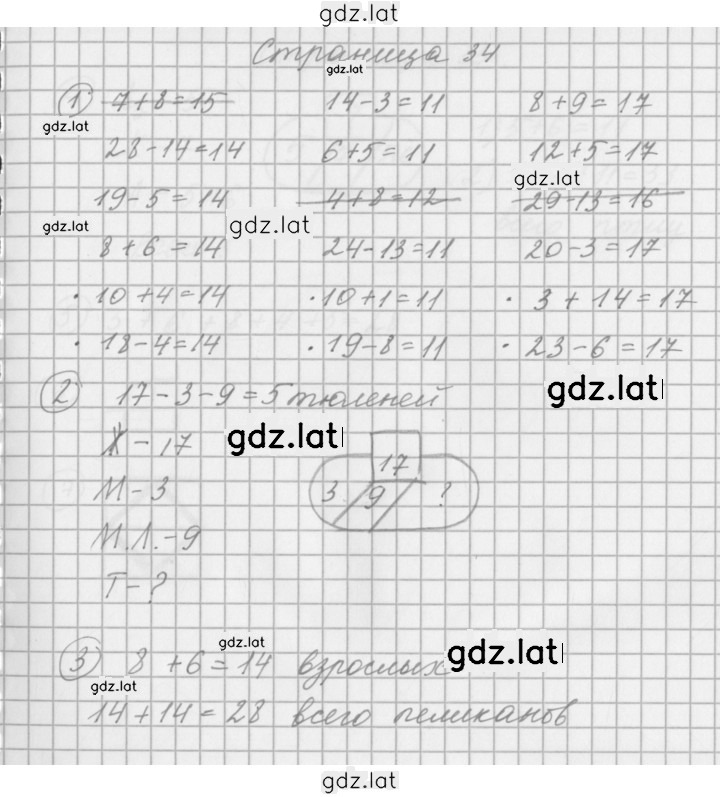 gdz.lat
Страница 34
gdz.lat
1) 7+8=15 14-3=11 8+9=17
gdz.lat
28-14=14 6+5=11 12+5=17
gdz.lat
19-5=14 4+8=12 29-13=16
gdz.lat gdz.lat
8+6=14 24-13=11 20-3=17
· 10+4=14 · 10+1=11 · 3+14=17
· 18-4=14 · 19-8=11 · 23-6=17
2) 17-3-9=5 тюленей gdz.lat
Ж-17 gdz.lat
17
М-3 3 9 ?
М.Л.-9
Т-?
gdz.lat
3) 8+6=14 взрослых gdz.lat
gdz.lat
14+14=28 всего пеликанов
gdz.lat